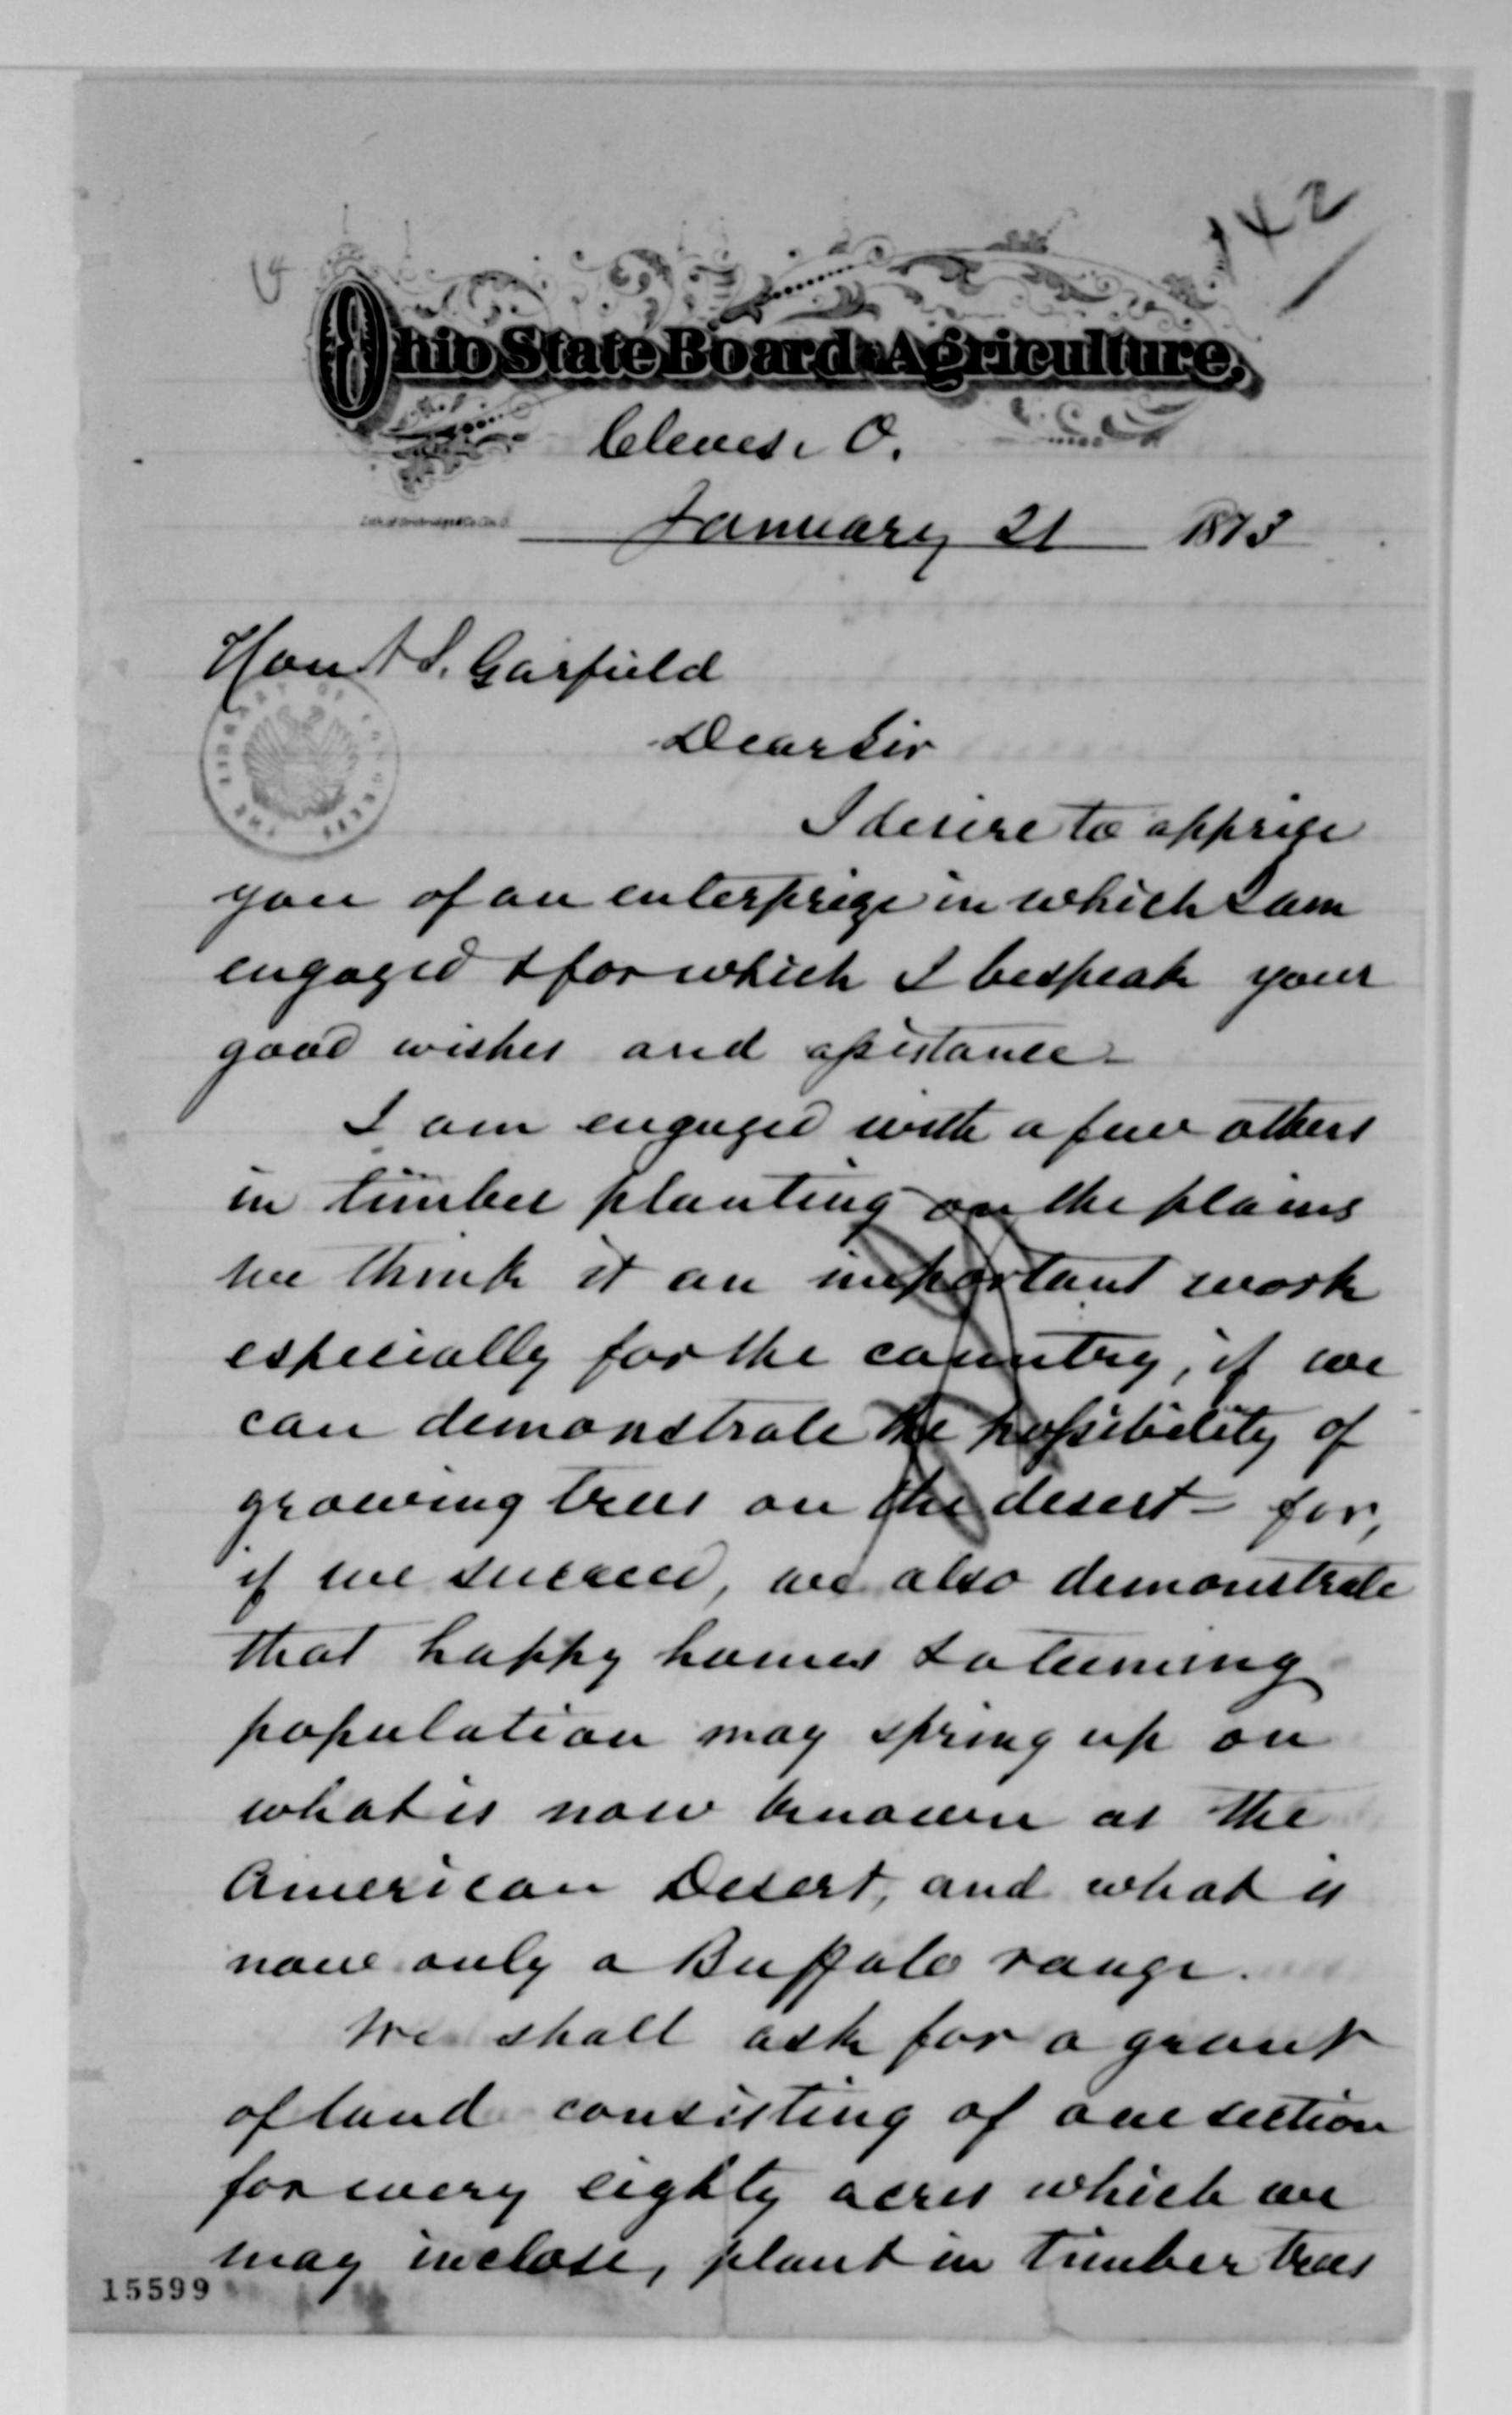 142
Ohio State Board of Agriculture,
Cleves. O.
January 21 1873
Hon A S. Garfield
Dear Sir
I desire to apprise
you of an enterprize in which I am
engaged & for which I bespeak your
good wishes and assistance -
I am engaged with a few others
in timber planting on the plains
We think it an important work
especially for the country, if we
can demonstrate the possibility of
growing trees on the desert - for,
if we succeed, we also demonstrate
that happy homes & a teeming
population may spring up on
what is now known as the
American Desert, and what is
now only a Buffalo range.
We shall ask for a grant
of land consisting of one section
for every eighty acres which we
may inclose, plant in timber trees
15599